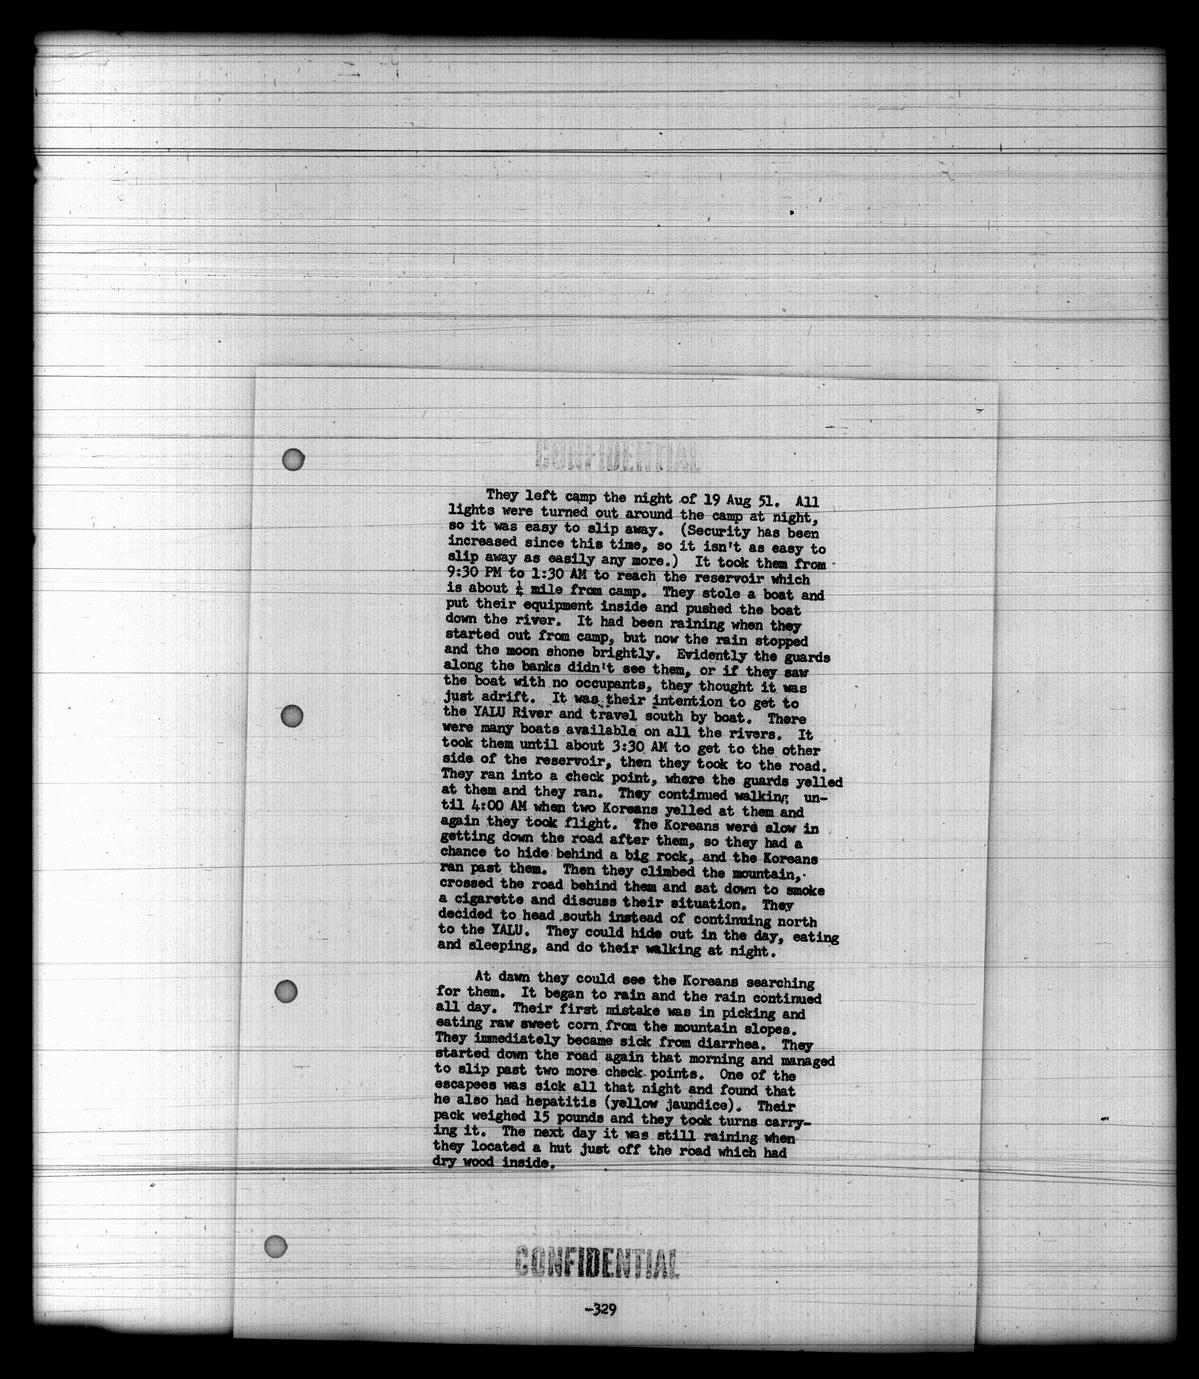 CONFIDENTIAL
They left camp the night of 19 Aug 51. All
lights were turned out around the camp at night,
so it was easy to slip away. (Security has been
increased since this time, so it isn't as easy to
slip away as easily any more.) It took them from
9:30 PM to 1:30 AM to reach the reservoir which
is about ¼ mile from camp. They stole a boat and
put their equipment inside and pushed the boat
down the river. It had been raining when they
started out from camp, but now the rain stopped
and the moon shone brightly. Evidently the guards
along the banks didn't see them, or if they saw
the boat with no occupants, they thought it was
just adrift. It was their intention to get to
the YALU River and travel south by boat. There
were many boats available on all the rivers. It
took them until about 3:30 AM to get to the other
side of the reservoir, then they took to the road.
They ran into a check point, where the guards yelled
at them and they ran. They continued walking un-
til 4:00 AM when two Koreans yelled at them and
again they took flight. The Koreans were slow in
getting down the road after them, so they had a
chance to hide behind a big rock, and the Koreans
ran past them. Then they climbed the mountain,
crossed the road behind them and sat down to smoke
a cigarette and discuss their situation. They
decided to head south instead of continuing north
to the YALU. They could hide out in the day, eating
and sleeping, and do their walking at night.
At dawn they could see the Koreans searching
for them. It began to rain and the rain continued
all day. Their first mistake was in picking and
eating raw sweet corn from the mountain slopes.
They immediately became sick from diarrhea. They
started down the road again that morning and managed
to slip past two more check points. One of the
escapees was sick all that night and found that
he also had hepatitis (yellow jaundice). Their
pack weighed 15 pounds and they took turns carry-
ing it. The next day it was still raining when
they located a hut just off the road which had
dry wood inside.
CONFIDENTIAL
-329